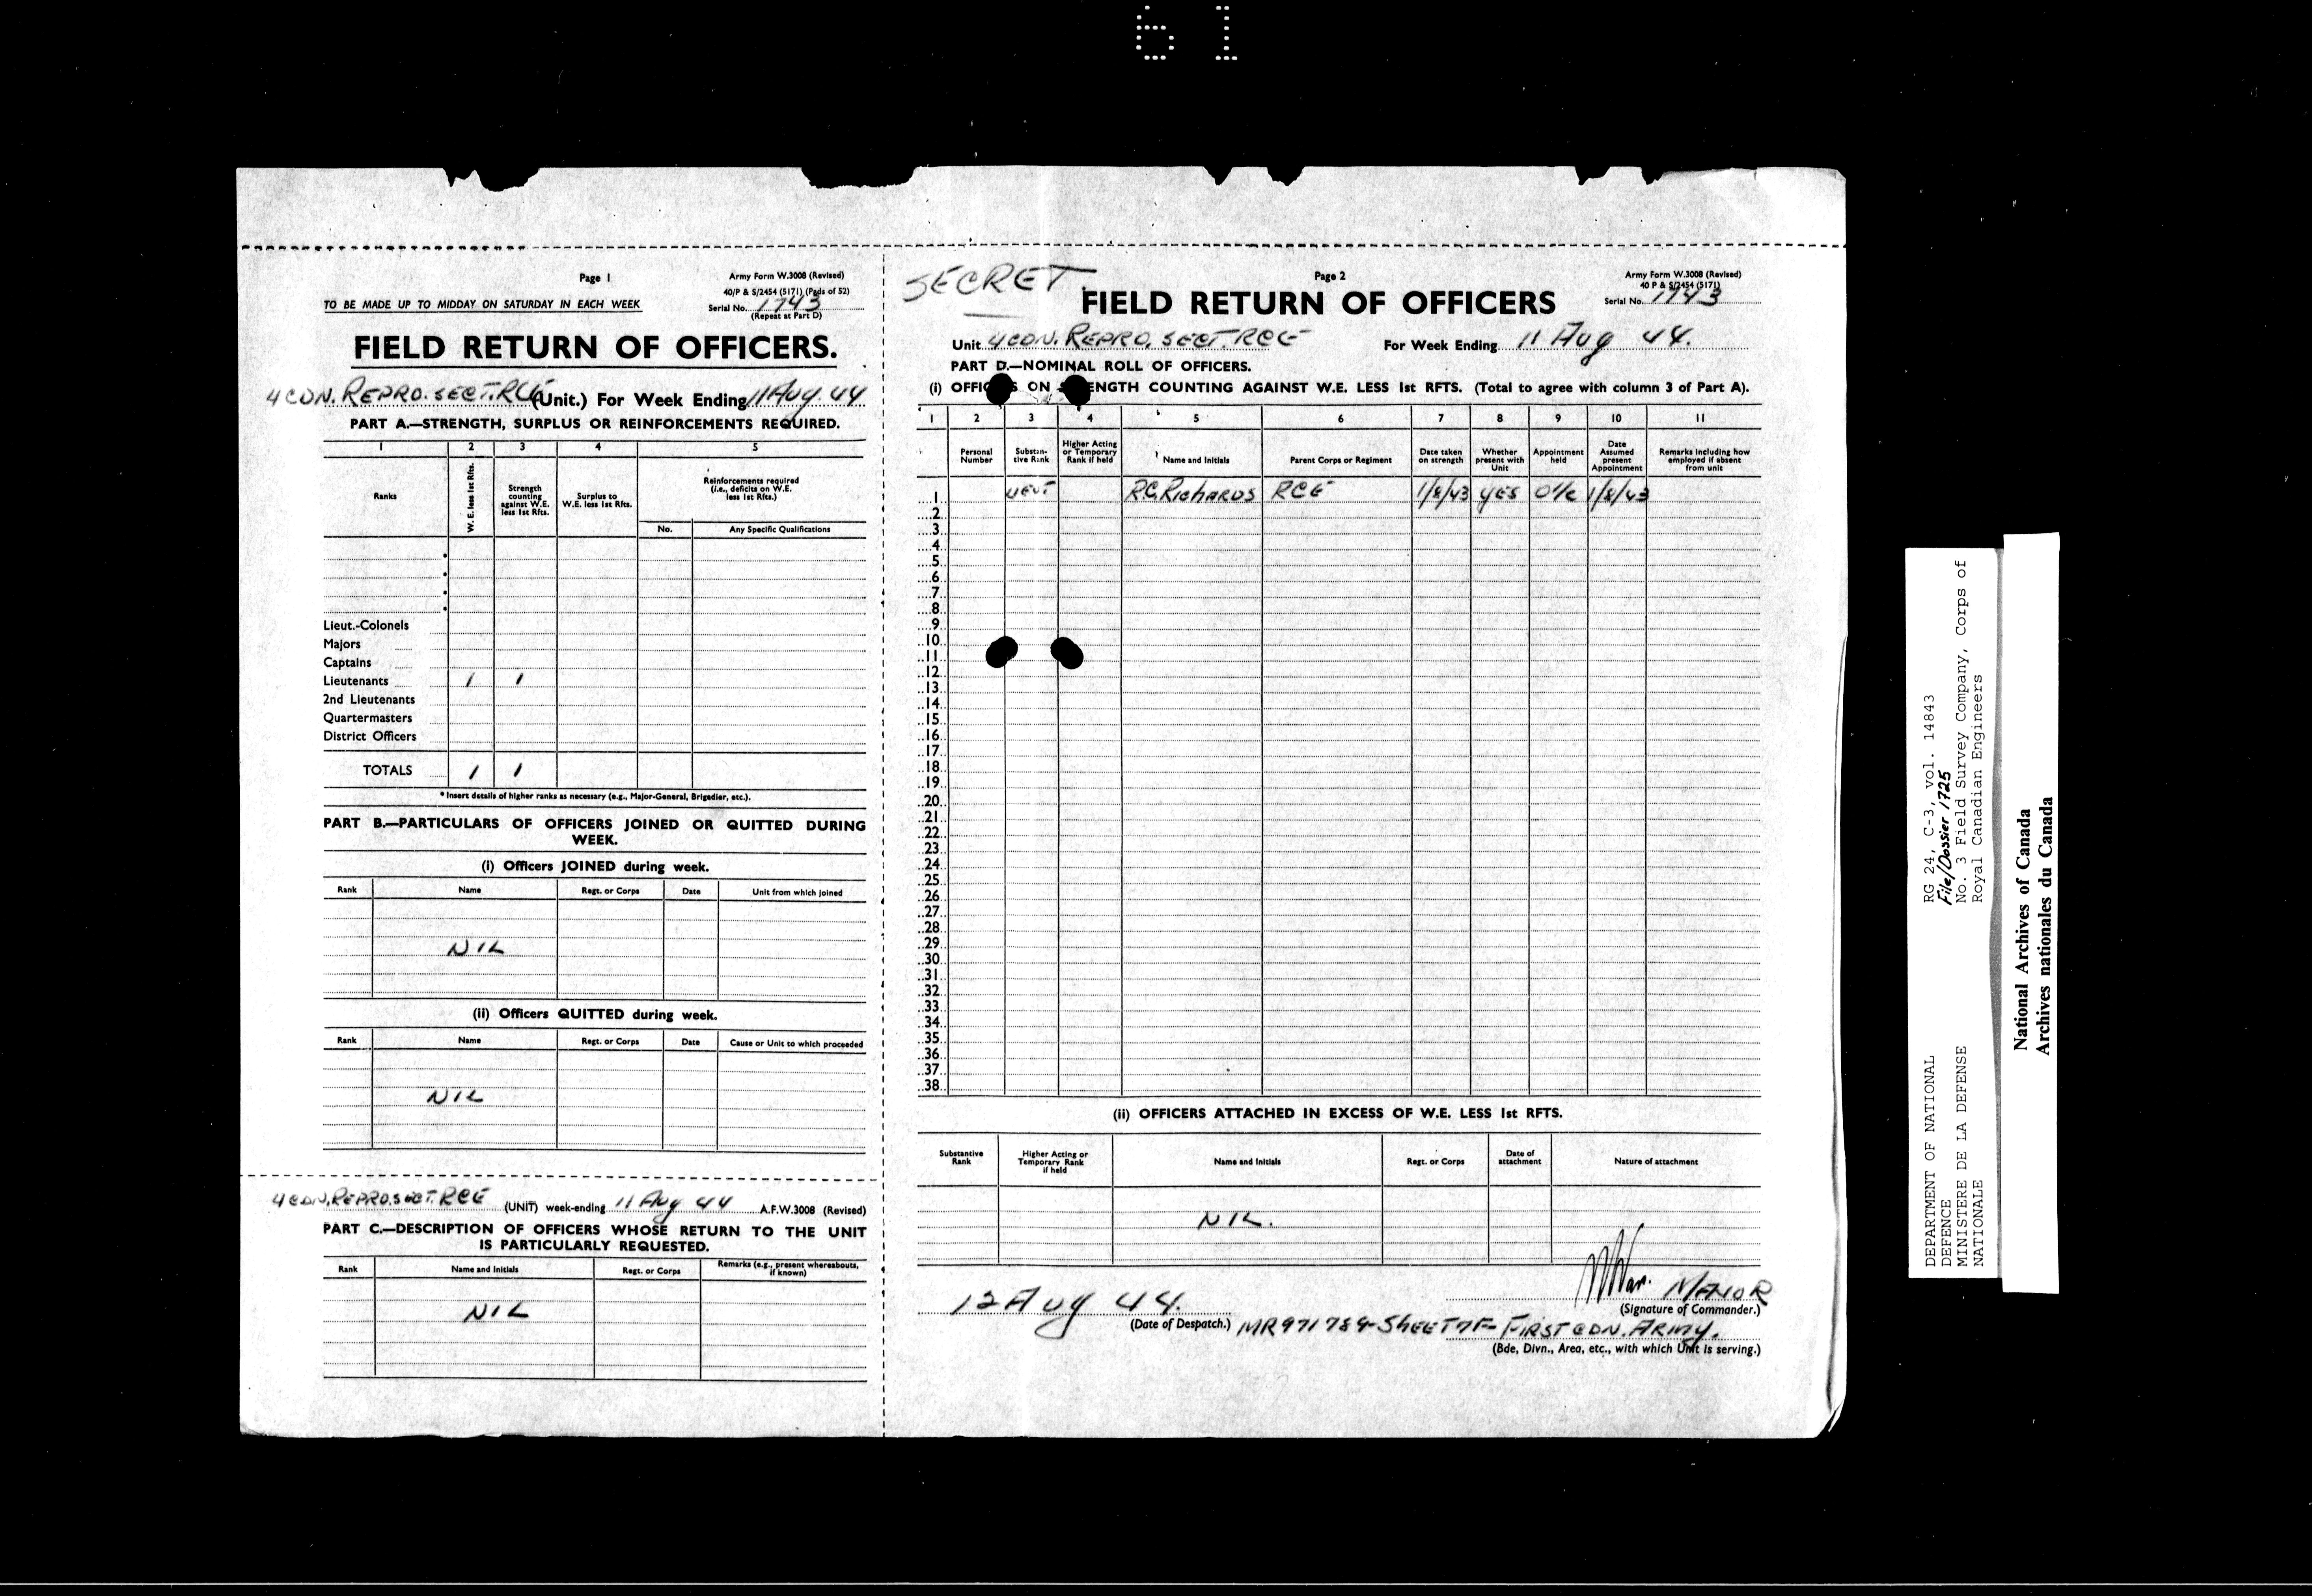 61
Page 1
Army Form W.3008 (Revised)
40/P & S/2454 (5171) (Pads of 52)
TO BE MADE UP TO MIDDAY ON SATURDAY IN EACH WEEK
Serial No. 1743
(Repeat at Part D)
FIELD RETURN OF OFFICERS.
4 CDN. REPRO. SECT. RCE (Unit.) For Week Ending 11 Aug. 44
PART A.—STRENGTH, SURPLUS OR REINFORCEMENTS REQUIRED.
1 2 3 4 5
Ranks
W. E. less 1st Rfts.
Strength counting against W.E. less 1st Rfts.
Surplus to W.E. less 1st Rfts.
Reinforcements required (i.e., deficits on W.E. less 1st Rfts.)
No. Any Specific Qualifications
*
*
*
*
Lieut.-Colonels
Majors
Captains
Lieutenants 1 1
2nd Lieutenants
Quartermasters
District Officers
TOTALS 1 1
* Insert details of higher ranks as necessary (e.g., Major-General, Brigadier, etc.).
PART B.—PARTICULARS OF OFFICERS JOINED OR QUITTED DURING
WEEK.
(i) Officers JOINED during week.
Rank Name Regt. or Corps Date Unit from which joined
NIL
(ii) Officers QUITTED during week.
Rank Name Regt. or Corps Date Cause or Unit to which proceeded
NIL
4 CDN. REPRO. SECT. RCE (UNIT) week-ending 11 Aug 44 A.F.W.3008 (Revised)
PART C.—DESCRIPTION OF OFFICERS WHOSE RETURN TO THE UNIT
IS PARTICULARLY REQUESTED.
Rank Name and Initials Regt. or Corps Remarks (e.g., present whereabouts, if known)
NIL
SECRET
Page 2
Army Form W.3008 (Revised)
40 P & S/2454 (5171)
Serial No. 1743
FIELD RETURN OF OFFICERS
Unit 4 CDN. REPRO. SECT. RCE For Week Ending 11 Aug 44.
PART D.—NOMINAL ROLL OF OFFICERS.
(i) OFFIC S ON ENGTH COUNTING AGAINST W.E. LESS 1st RFTS. (Total to agree with column 3 of Part A).
1 2 3 4 5 6 7 8 9 10 11
Personal Number
Substan-tive Rank
Higher Acting or Temporary Rank if held
Name and Initials
Parent Corps or Regiment
Date taken on strength
Whether present with Unit
Appointment held
Date Assumed present Appointment
Remarks including how employed if absent from unit
1 LIEUT R.C. RICHARDS RCE 1/8/43 YES O i/c 1/8/43
2
3
4
5
6
7
8
9
10
11
12
13
14
15
16
17
18
19
20
21
22
23
24
25
26
27
28
29
30
31
32
33
34
35
36
37
38
(ii) OFFICERS ATTACHED IN EXCESS OF W.E. LESS 1st RFTS.
Substantive Rank
Higher Acting or Temporary Rank if held
Name and Initials
Regt. or Corps
Date of attachment
Nature of attachment
NIL.
12 Aug 44. MAJOR
(Signature of Commander.)
(Date of Despatch.) MR 971784 - SHEET 7F - FIRST CDN. ARMY.
(Bde, Divn., Area, etc., with which Unit is serving.)
DEPARTMENT OF NATIONAL
DEFENCE
MINISTERE DE LA DEFENSE
NATIONALE
RG 24, C-3, vol. 14843
File/Dossier 1725
No. 3 Field Survey Company, Corps of
Royal Canadian Engineers
National Archives of Canada
Archives nationales du Canada